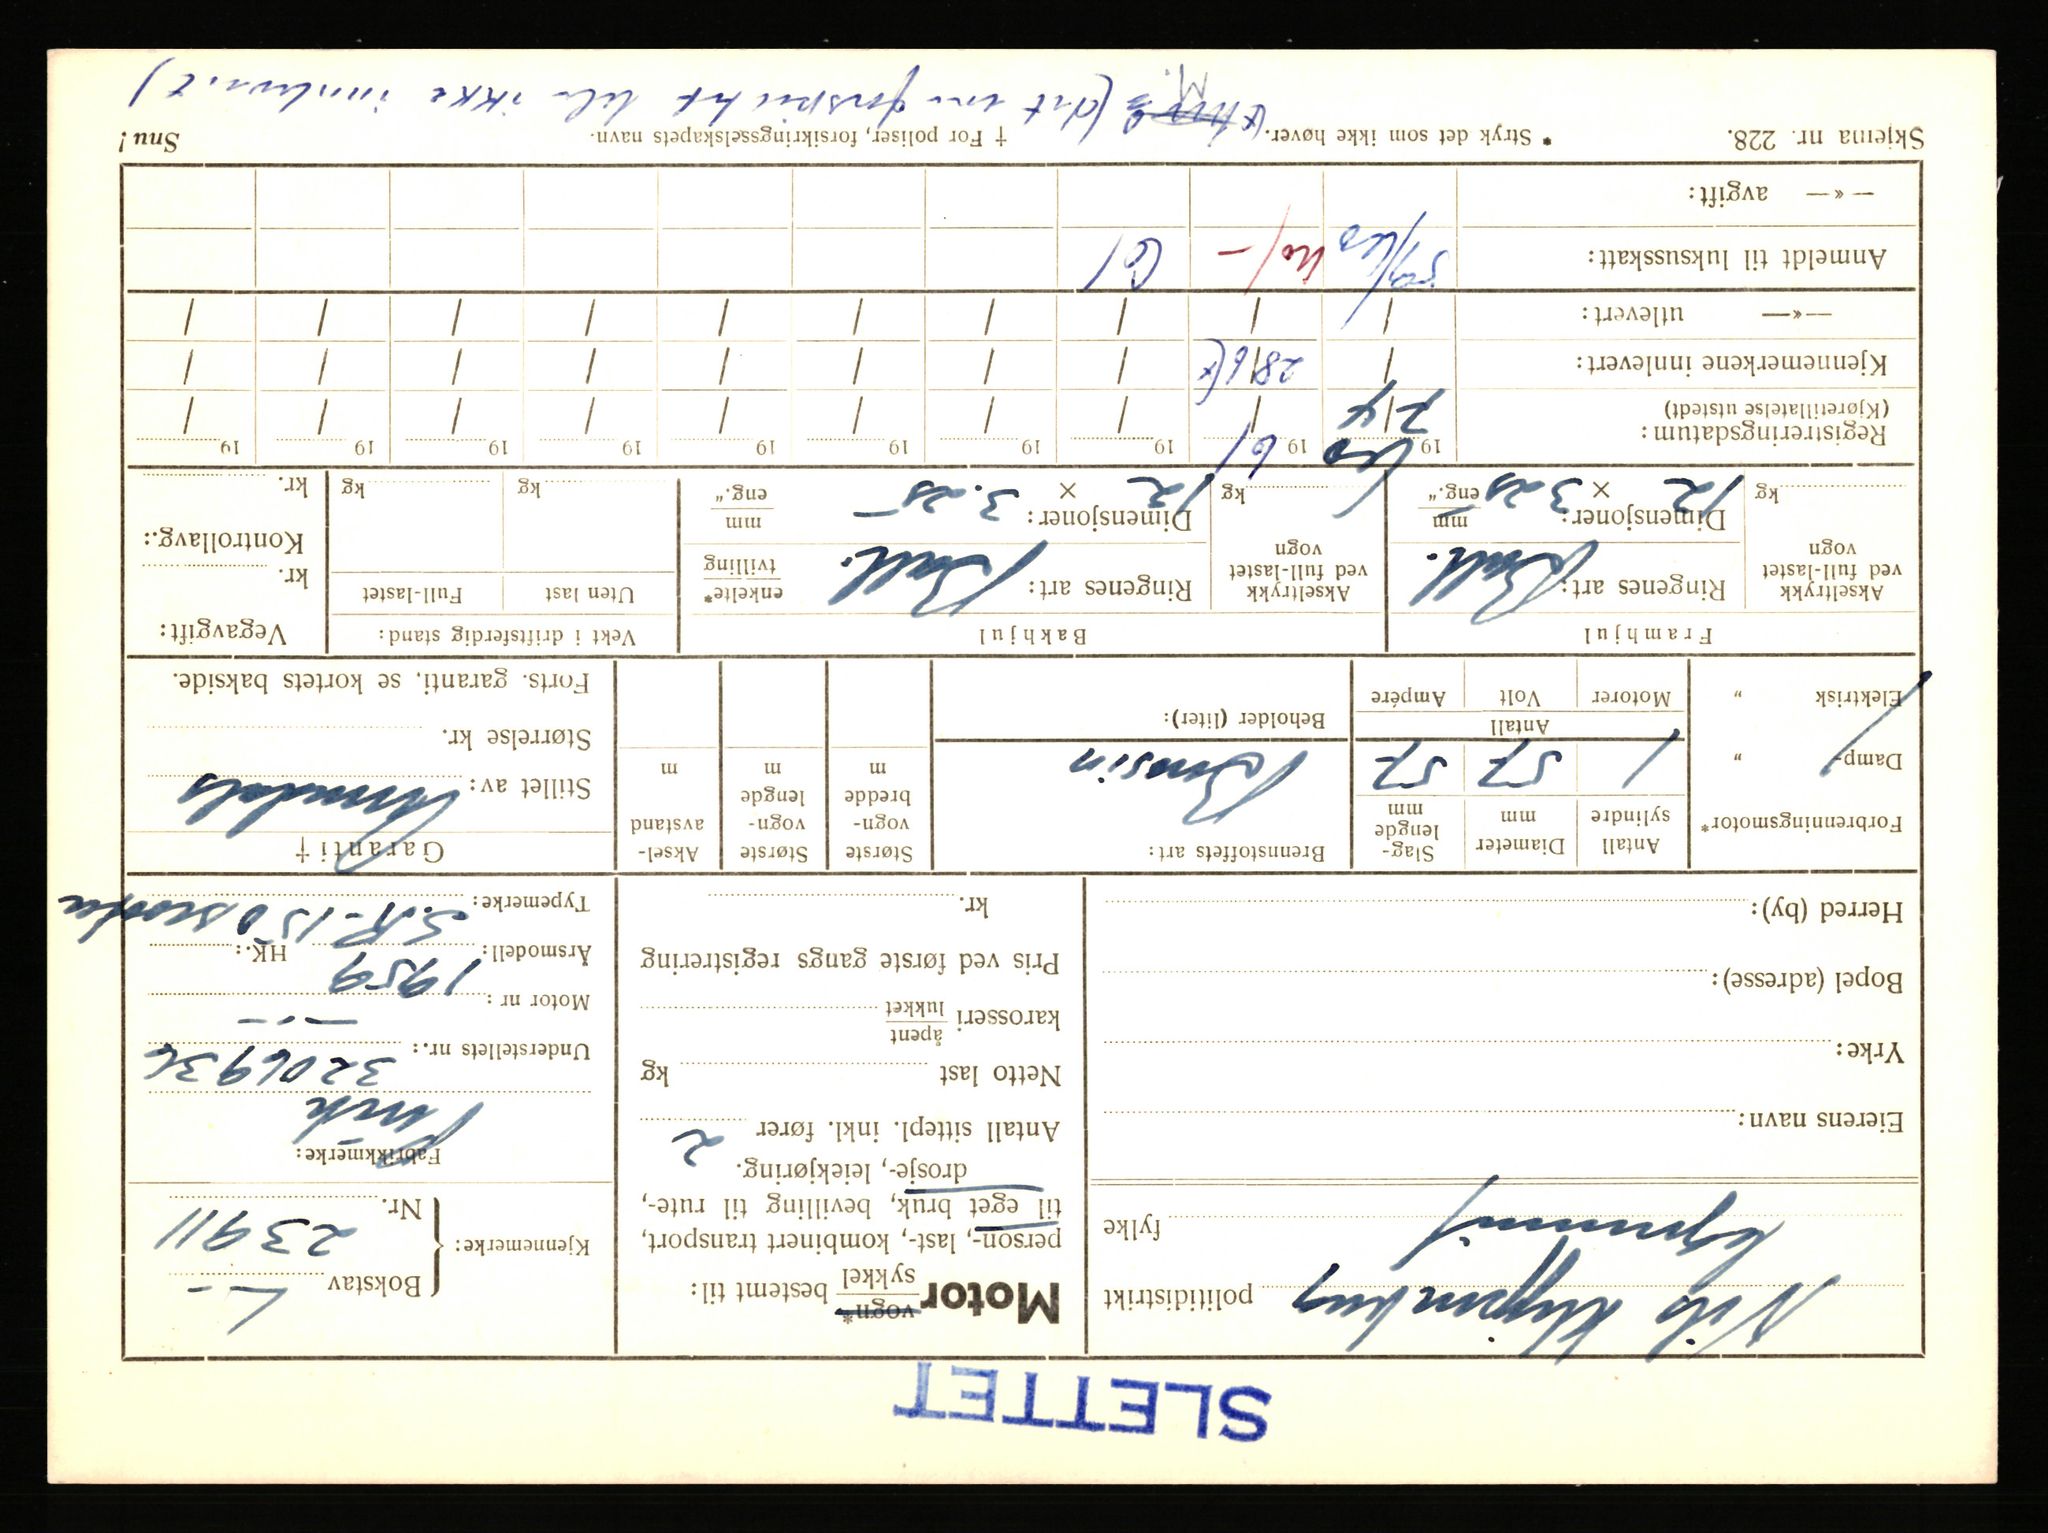 SLETTET
politidistrikt
fylke
Eierens navn:
Yrke:
Bopel (adresse):
Herred (by):
Motor vogn* sykkel bestemt til:
person-, last-, kombinert transport,
til eget bruk, bevilling til rute-,
drosje-, leiekjøring.
Antall sittepl. inkl. fører 2
Netto last kg
karosseri åpent lukket
Pris ved første gangs registrering
kr.
Kjennemerke: Bokstav L-
Nr. 23911
Fabrikkmerke: Puch
Understellets nr.: 3206936
Motor nr: — " —
Årsmodell: 1959 HK.:
Typemerke: S.R-150 scooter
Forbrenningsmotor*
Damp- „
Elektrisk „
Antall sylindre 1
Diameter mm 57
Slag-lengde mm 57
Antall
Motorer Volt Ampére
Brennstoffets art: Bensin
Beholder (liter):
Største vogn-bredde m
Største vogn-lengde m
Aksel-avstand m
Garanti †
Stillet av:
Størrelse kr.
Forts. garanti, se kortets bakside.
Framhjul
Akseltrykk ved full-lastet vogn kg
Ringenes art: Ball.
Dimensjoner: 12 × 3.25 mm eng."
Bakhjul
Akseltrykk ved full-lastet vogn kg
Ringenes art: Ball. enkelte* tvilling
Dimensjoner: 12 × 3.25 mm eng."
Vekt i driftsferdig stand:
Uten last Full-lastet
kg kg
Vegavgift:
kr.
Kontrollavg.:
kr.
Registreringsdatum: 19 60 19 61 19 19 19 19 19 19 19 19
(Kjøretillatelse utstedt)
Kjennemerkene innlevert: 28/6 (x
—»— utlevert:
Anmeldt til luksusskatt: 61
—»— avgift:
Skjema nr. 228. * Stryk det som ikke høver. † For poliser, forsikringsselskapets navn. Snu!
ikke innlevert)